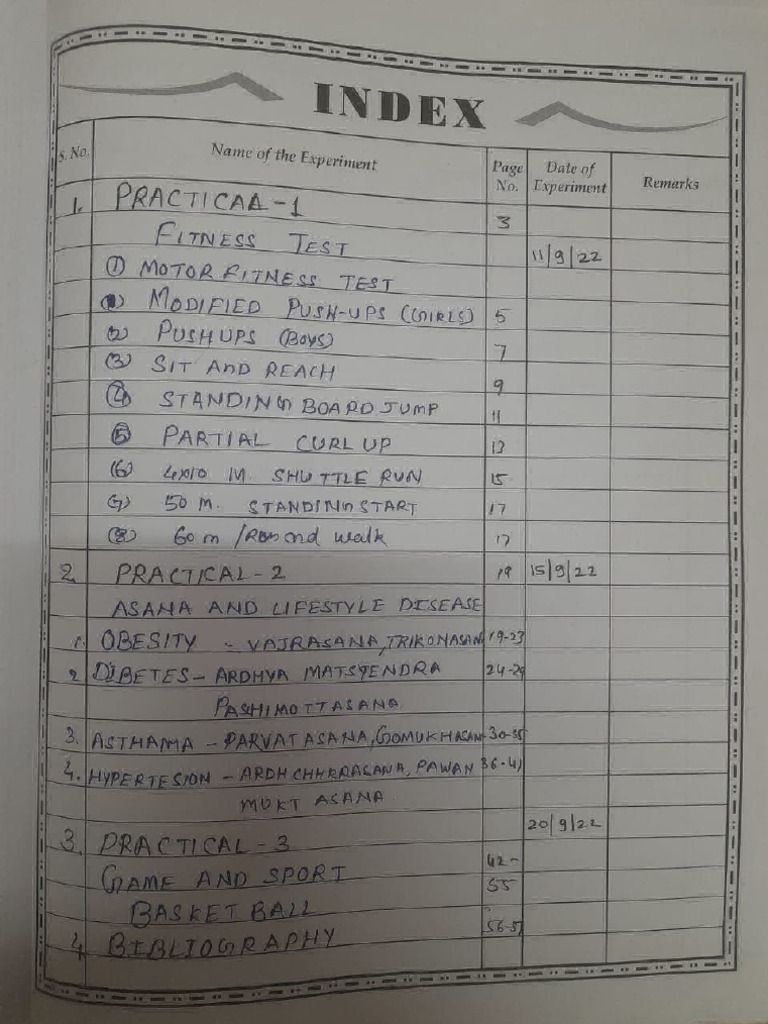 INDEX
S. No. Name of the Experiment Page No. Date of Experiment Remarks
1. PRACTICAL-1 3
FITNESS TEST 11/9/22
① MOTOR FITNESS TEST
① MODIFIED PUSH-UPS (GIRLS) 5
② PUSHUPS (BOYS) 7
③ SIT AND REACH 9
④ STANDING BOARD JUMP 11
⑤ PARTIAL CURL UP 13
⑥ 4x10 M. SHUTTLE RUN 15
⑦ 50 M. STANDING START 17
⑧ 60 m / and walk 17
2 PRACTICAL-2 19 15/9/22
ASANA AND LIFESTYLE DISEASE
1. OBESITY - VAJRASANA, TRIKONASAN 19-23
2 DIBETES - ARDHYA MATSYENDRA 24-29
PASHIMOTTASANA
3. ASTHAMA - PARVATASANA, GOMUKHASAN 30-35
4. HYPERTESION - ARDHCHHKRASANA, PAWAN 36-41
MUKT ASANA
20/9/22
3. PRACTICAL - 3 42-
GAME AND SPORT 55
BASKET BALL
4 BIBLIOGRAPHY 56-57